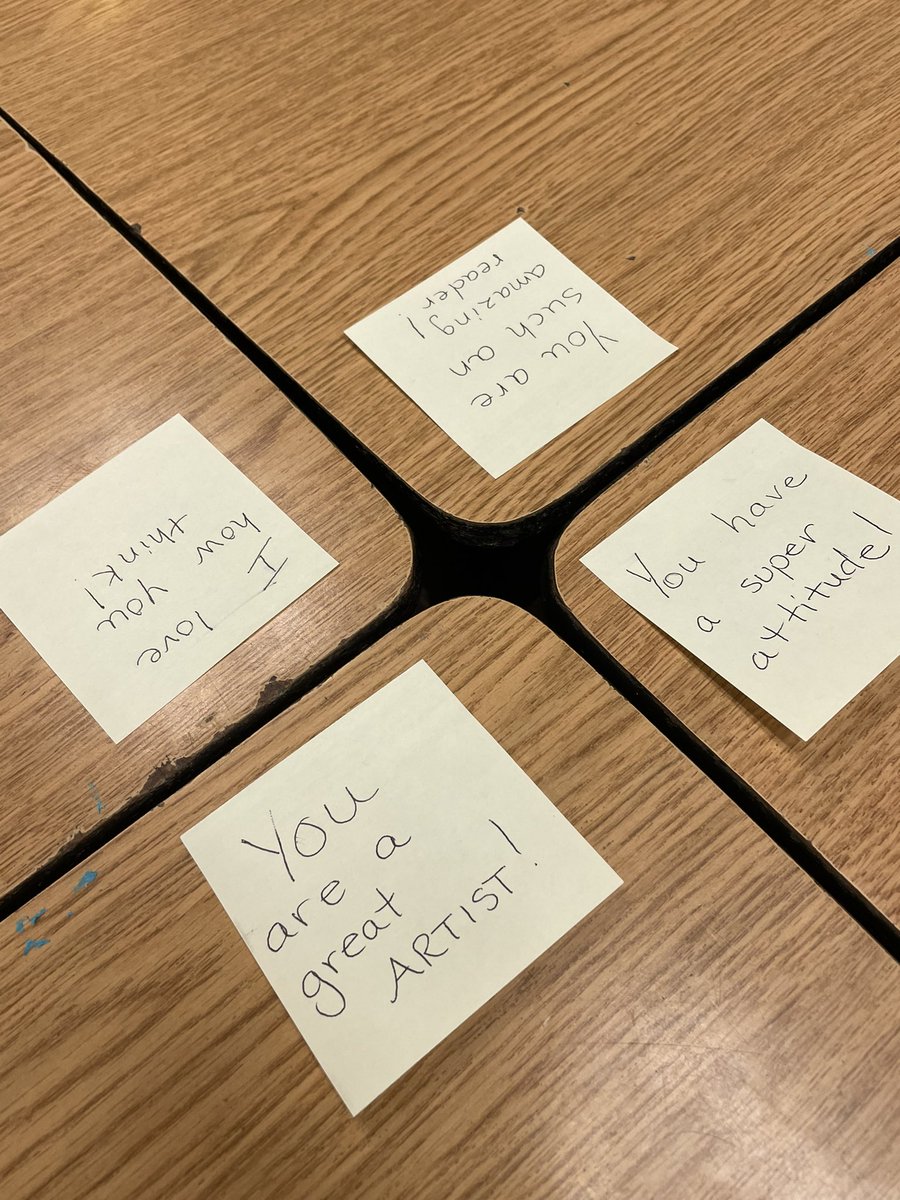 You are
such an
amazing!
reader.
I love
how you
think!
You have
a super
attitude!
You
are a
great
ARTIST!